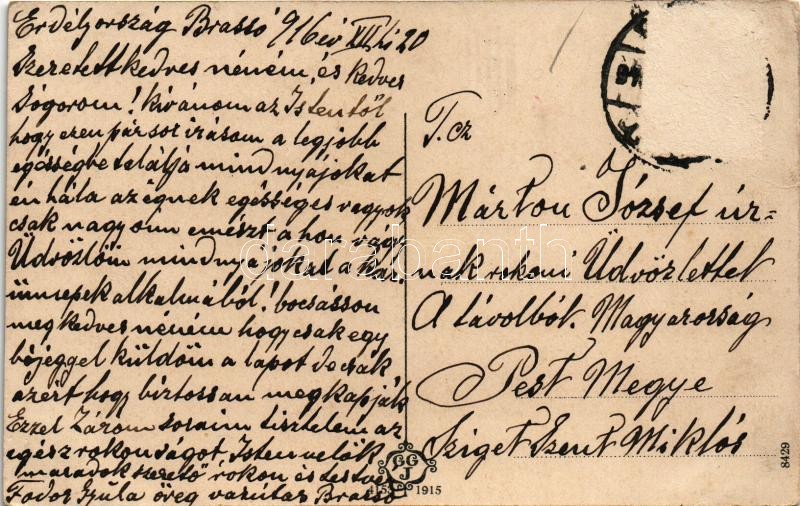 Erdélyország Brassó 916 év XII hi 20
Szeretettkedves néném, és kedves
Sógorom! kivánom az Istentől
hogy ezen pár sor irásom a legjobb
egésségbe telálja mindnyájokat
én hála az égnek egésséges vagyok
csak nagyonn emészt a hon vágy
Üdvözlöm mindnyájokat a kar
ünnepek alkalmából! bocsásson
meg kedves néném hogy csak egy
béjeggel küldöm a lapot de csak
azért hogy biztossan megkapják
Ezzel Zárom soraim tisztelem az
egész rokonságot Isten velök
maradok szerető rokon és testvé
Fodor Gyula öreg vasutas Brassó
T. cz
Márton József úr-
nak rokoni Üdvözlettel
A távolból. Magyarország
Pest Megye
Sziget Szent Miklós
1915
8429
darabanth